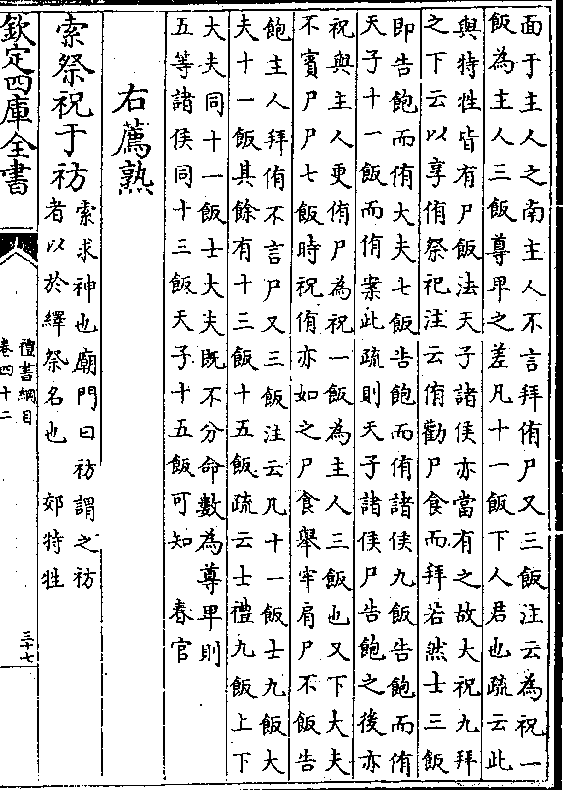 面于主人之南主人不言拜侑尸又三飯注云為祝一
飯為主人三飯尊卑之差凡十一飯下人君也疏云此
與特牲皆有尸飯法天子諸侯亦當有之故大祝九拜
之下云以享侑祭祀注云侑勸尸食而拜若然士三飯
即告飽而侑大夫七飯告飽而侑諸侯九飯告飽而侑
天子十一飯而侑案此疏則天子諸侯尸告飽之後亦
祝與主人更侑尸為祝一飯為主人三飯也又下大夫
不賓尸尸七飯時祝侑亦如之尸食舉牢肩尸不飯告
飽主人拜侑不言尸又三飯注云凡十一飯士九飯大
夫十一飯其餘有十三飯十五飯疏云士禮九飯上下
大夫同十一飯士大夫既不分命數為尊卑則
五等諸侯同十三飯天子十五飯可知 春官
右薦熟
索祭祝于祊
索求神也廟門曰祊謂之祊
者以於繹祭名也 郊特牲
欽定四庫全書
禮書綱目
卷四十二
三十七